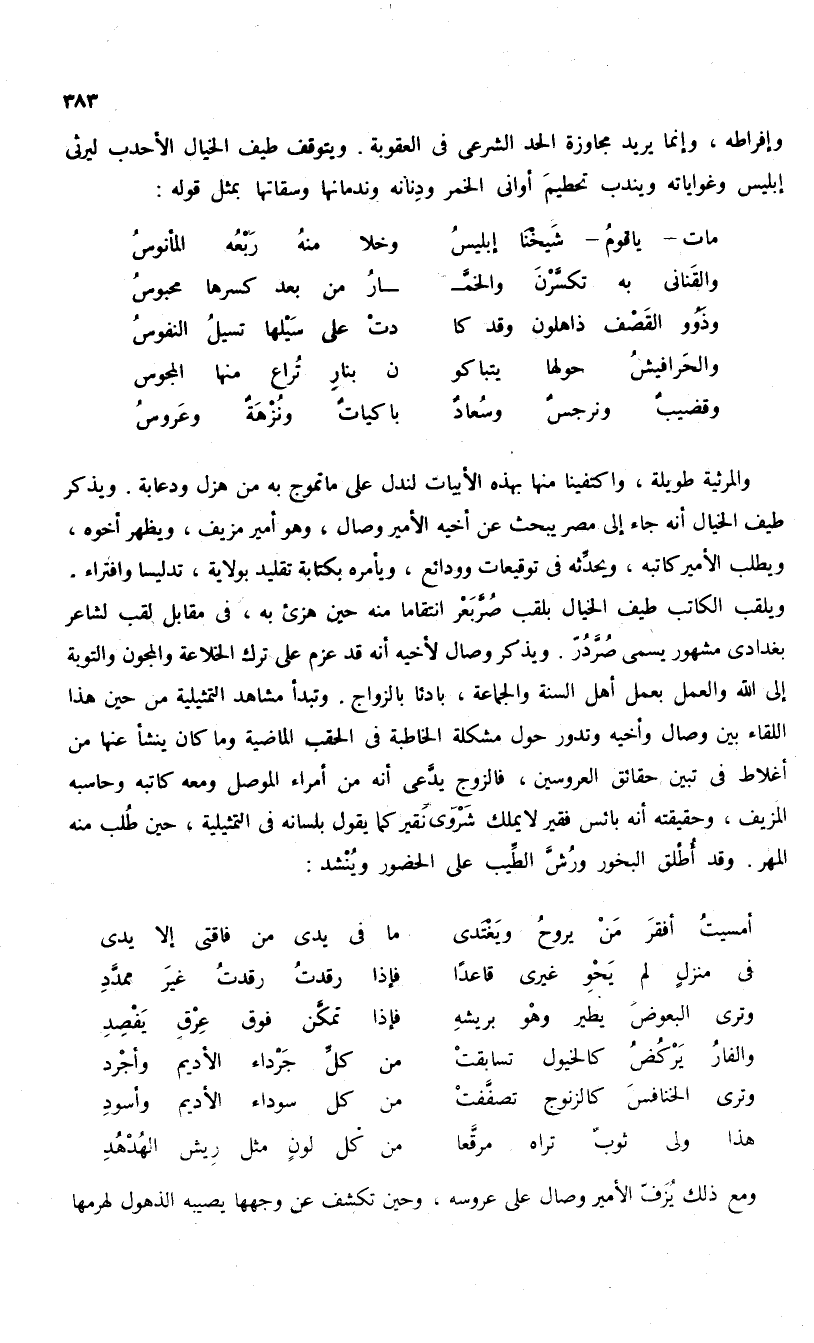 ٣٨٣
وإفراطه ، وإنما يريد مجاوزة الحد الشرعى فى العقوبة . ويتوقف طيف الخيال الأحدب ليرثى
إبليس وغواياته ويندب تحطيمَ أوانى الخمر ودِنانه وندمانها وسقاتها بمثل قوله :
مات - ياقومُ - شَيخُنَا إبليسُ وخلا منهُ رَبْعُه المأنوسُ
والقَنانى به تكسَّرْنَ والخمَّـ ـارُ من بعد كسرها محبوسُ
وذَوُو القَصْف ذاهلون وقد كا دتْ على سَيْلها تسيلُ النفوسُ
والحَرافيشُ حولها يتباكو ن بنارٍ تُراع منها المجوس
وقضيبٌ ونرجسٌ وسُعادٌ باكياتٌ ونُزْهَةٌ وعَروسُ
والمرثية طويلة ، واكتفينا منها بهذه الأبيات لندل على ماتموج به من هزل ودعابة . ويذكر
طيف الخيال أنه جاء إلى مصر يبحث عن أخيه الأمير وصال ، وهو أمير مزيف ، ويظهر أخوه ،
ويطلب الأمير كاتبه ، ويحدِّثه فى توقيعات وودائع ، ويأمره بكتابة تقليد بولاية ، تدليسا وافتراء .
ويلقب الكاتب طيف الخيال بلقب صُرَّبَعْر انتقاما منه حين هزئ به ، فى مقابل لقب لشاعر
بغدادى مشهور يسمى صُرَّدُرّ . ويذكر وصال لأخيه أنه قد عزم على ترك الخلاعة والمجون والتوبة
إلى الله والعمل بعمل أهل السنة والجماعة ، بادئا بالزواج . وتبدأ مشاهد التمثيلية من حين هذا
اللقاء بين وصال وأخيه وتدور حول مشكلة الخاطبة فى الحقب الماضية وما كان ينشأ عنها من
أغلاط فى تبين حقائق العروسين ، فالزوج يدَّعى أنه من أمراء الموصل ومعه كاتبه وحاسبه
المزيف ، وحقيقته أنه بائس فقير لايملك شَرْوَى نَقير كما يقول بلسانه فى التمثيلية ، حين طُلب منه
المهر . وقد أُطْلق البخور ورُشَّ الطِّيب على الحضور ويُنْشد :
أمسيتُ أفقرَ مَنْ يروحُ ويَغْتَدى ما فى يدى من فاقتى إلا يدى
فى منزلٍ لم يَحْوِ غيرى قاعدًا فإذا رقدتُ رقدتُ غيرَ ممدَّدِ
وترى البعوضَ يطير وهْو بريشهِ فإذا تمكَّن فوق عِرْقٍ يَفْصِدِ
والفارُ يَرْكُضُ كالخيول تسابقتْ من كلِّ جَرْداء الأديم وأجْرد
وترى الخنافسَ كالزنوج تصفَّفتْ من كل سوداء الأديم وأسودِ
هذا ولى ثوبٌ تراه مرقَّعا من كل لونٍ مثل رِيش الهُدْهُدِ
ومع ذلك يُزَفّ الأمير وصال على عروسه ، وحين تكشف عن وجهها يصيبه الذهول لهرمها